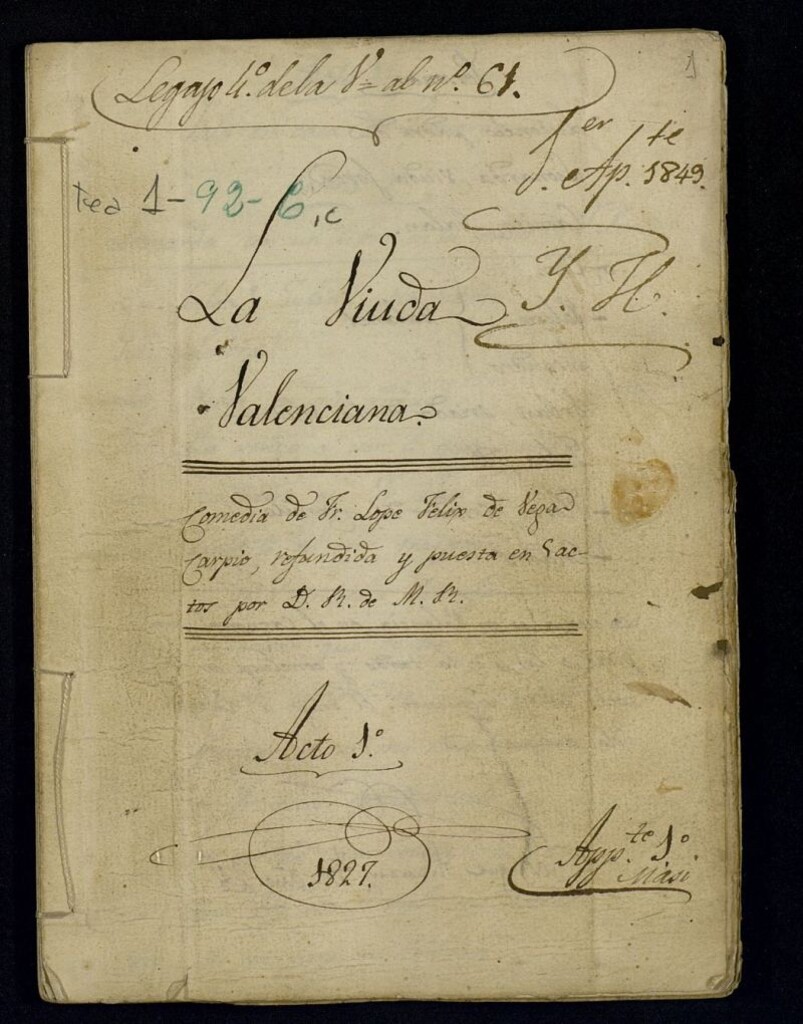 Legajo 4º. de la V= al nº. 61.
1
1.er Ap.te 1849.
tea 1-92-6, c
La Viuda
Y. H.
Valenciana.
Comedia de Fr. Lope Felix de Vega
Carpio, refundida y puesta en 5 ac-
tos por D. R. de M. R.
Acto 1º.
1827.
App.te 1º
Masi